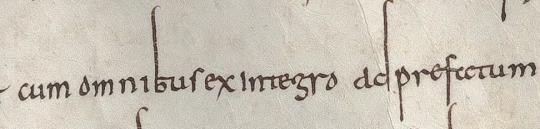 cum omnibus ex integro ad prefectum